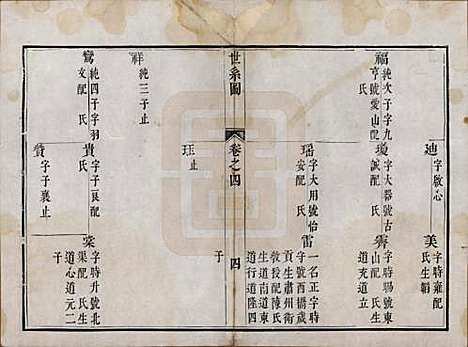 迪
字啟心
美
字時雍配
氏生韜
福
純次子字九
亨號愛山配
氏
瓊
字大器號古
誠配
氏
霽
字時暘號東
山配
氏生
道充道立
瑶
字大用號怡
安配
氏
雷
一名正字時
守號西橋歲
貢生肅州衛
教授配陳氏
生道南道東
道行道隆四
子
珏
止
世系圖
卷之四
四
祥
純三子止
鸞
純四子字羽
文配
氏
貴
字子良配
氏
棠
字時升號北
渠配
氏生
道心道元二
子
贊
字子襄止